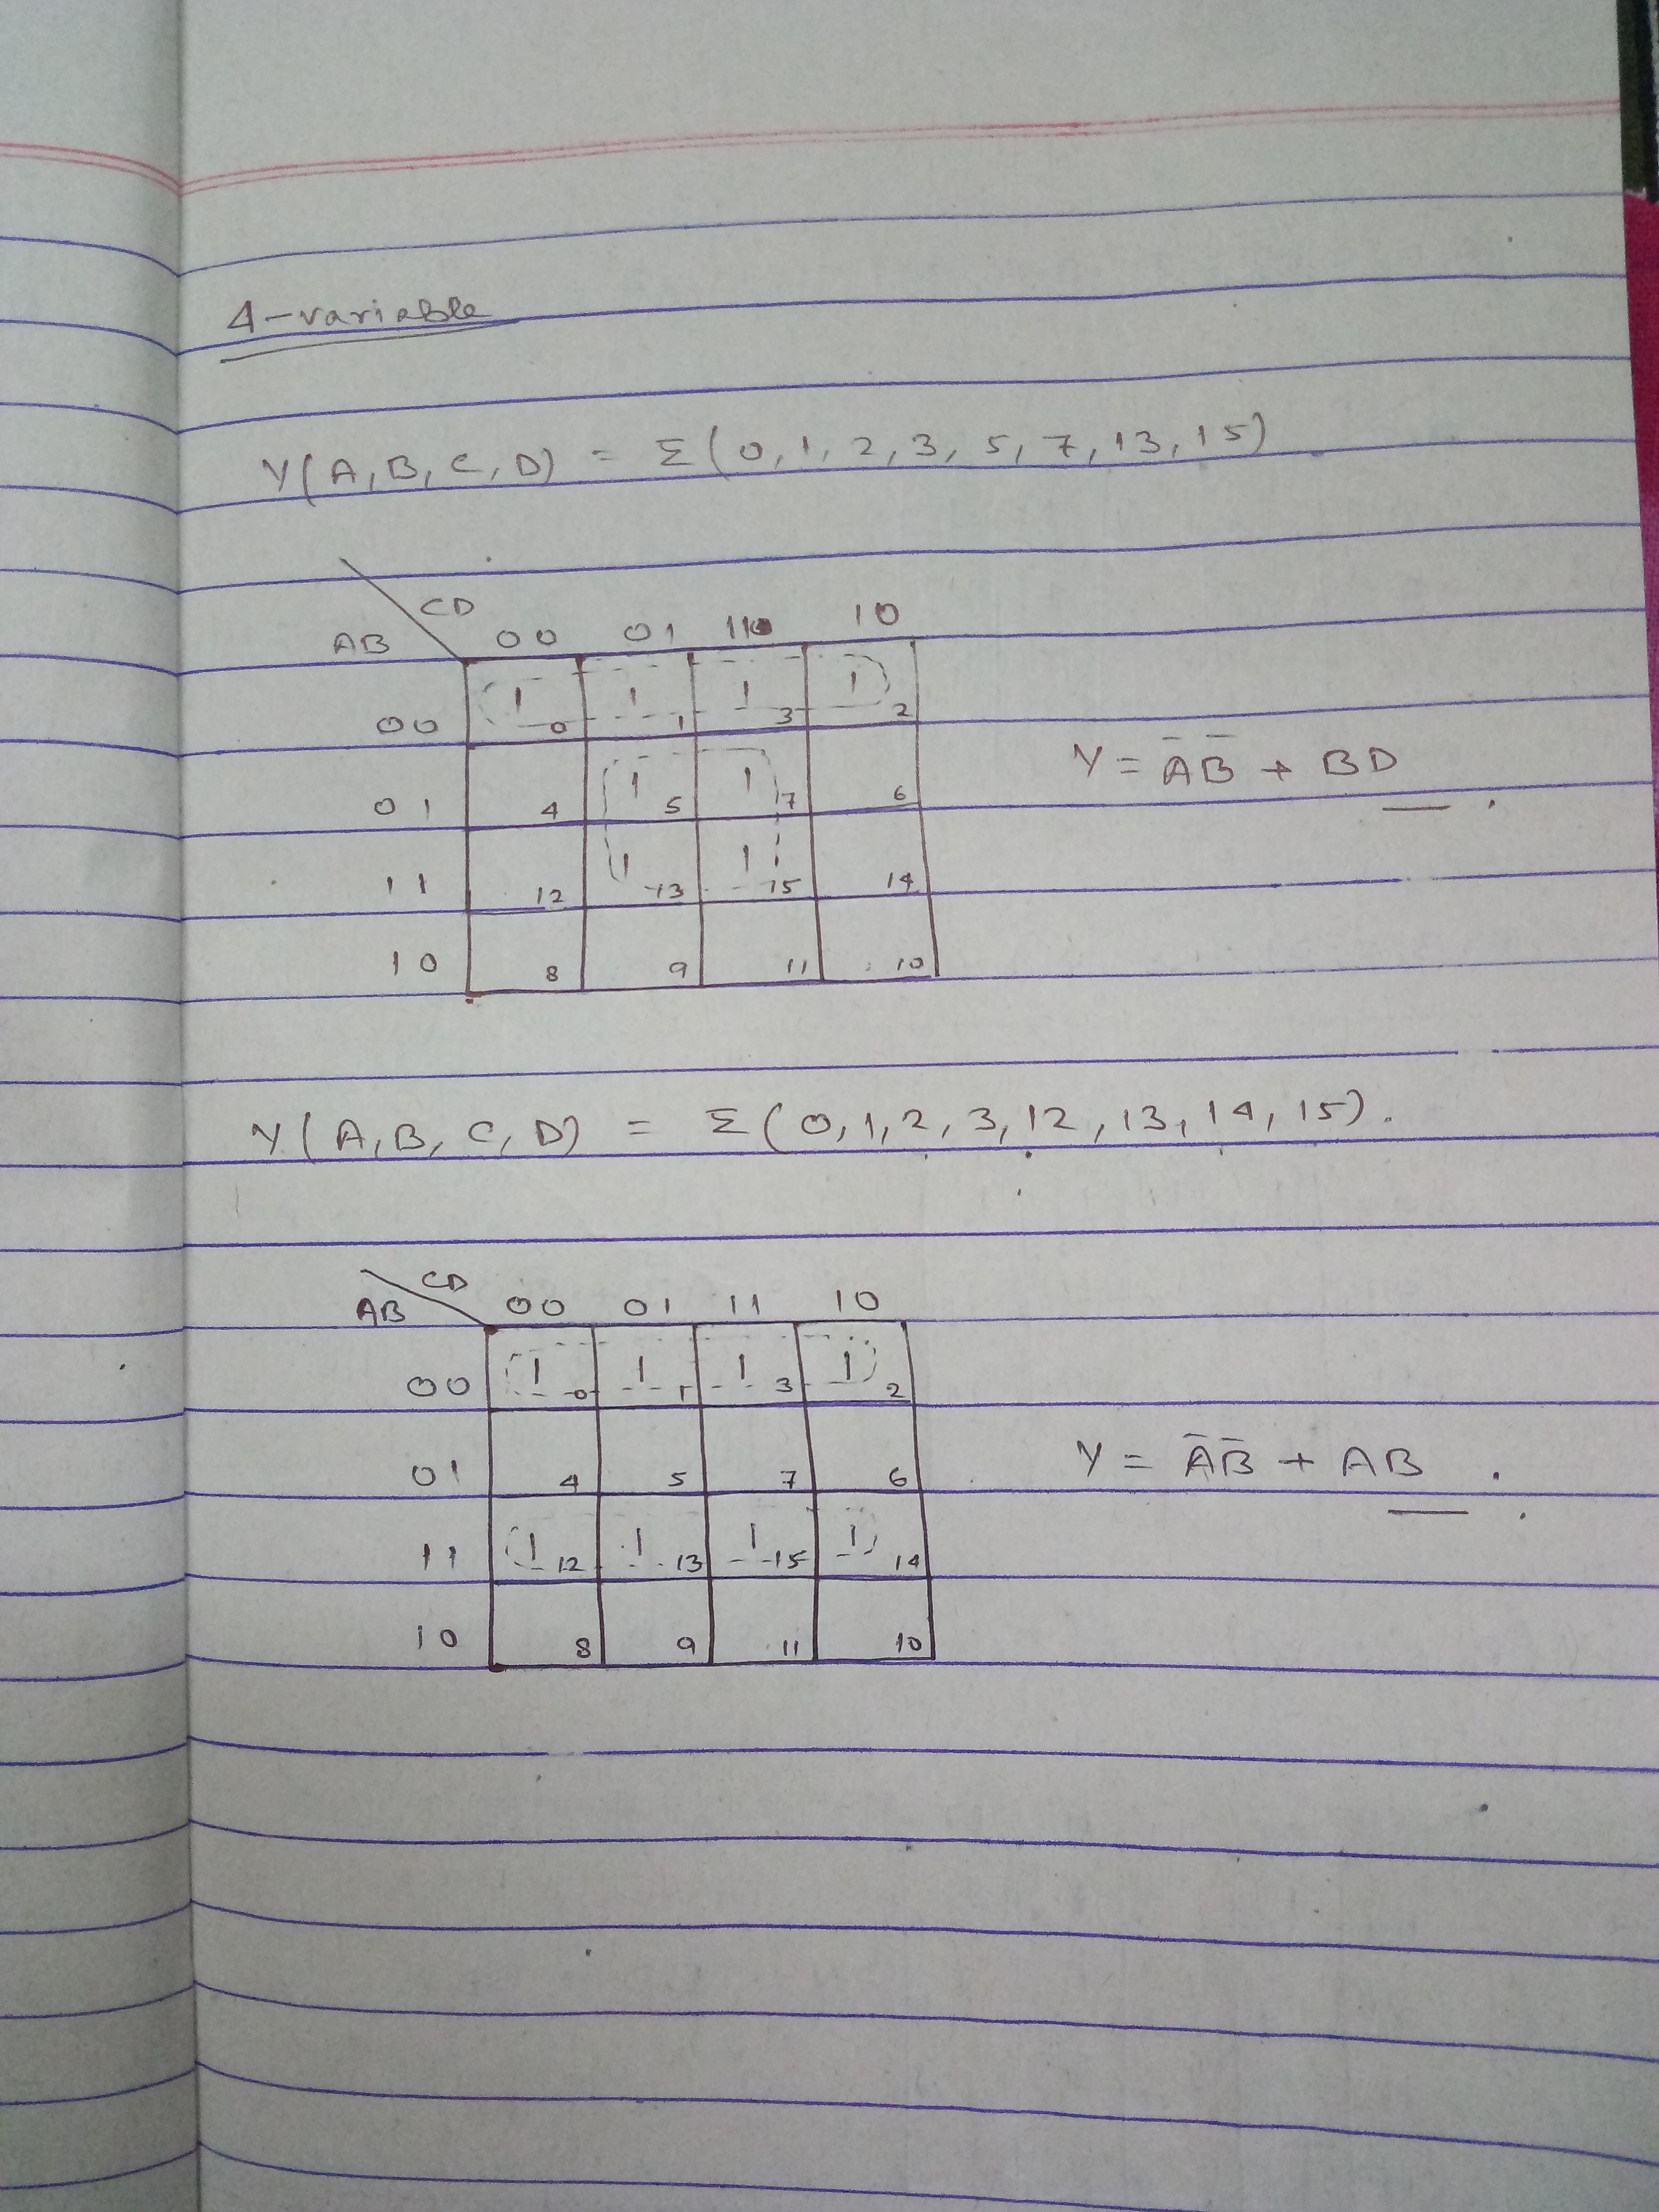 4-variable
Y(A,B,C,D) = Σ(0,1,2,3,5,7,13,15)
CD
AB 00 01 11 10
00 1 0 1 1 1 3 1 2
Y = A̅B̅ + BD
01 4 1 5 1 7 6
11 12 1 13 1 15 14
10 8 9 11 10
Y(A,B,C,D) = Σ(0,1,2,3,12,13,14,15).
CD
AB 00 01 11 10
00 1 0 1 1 1 3 1 2
01 4 5 7 6
Y = A̅B̅ + AB.
11 1 12 1 13 1 15 1 14
10 8 9 11 10